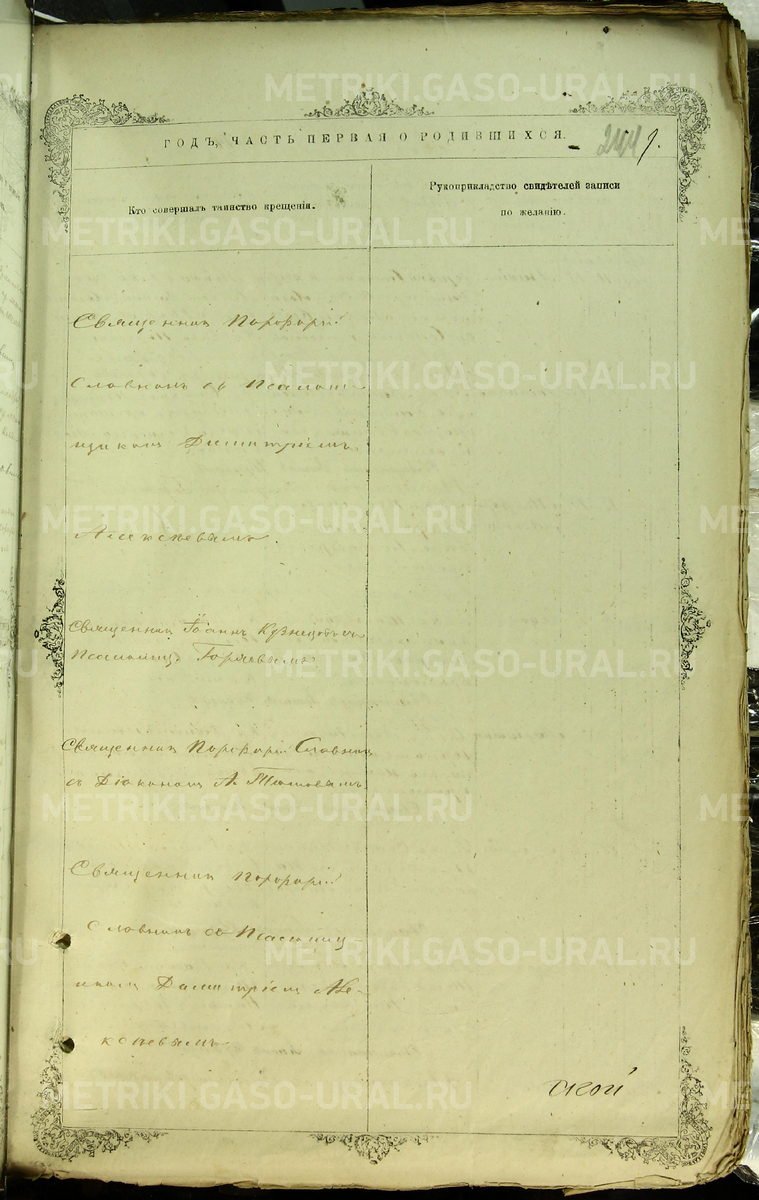 METRIKI.GASO-URAL.RU
ГОДЪ, ЧАСТЬ ПЕРВАЯ О РОДИВШИХСЯ.
Кто совершалъ таинство крещенія.
Рукоприкладство свидѣтелей записи
по желанію.
Священникъ Порфирій
Словцовъ со Псалом
щикомъ Димитріемъ
Алексѣевымъ.
Священникъ Іоаннъ Кузнецовъ съ
Священникъ Порфирій
съ Діакономъ А.
Священникъ Порфирій
со Псаломщ
икомъ Димитріемъ Але-
ксѣевымъ
ской